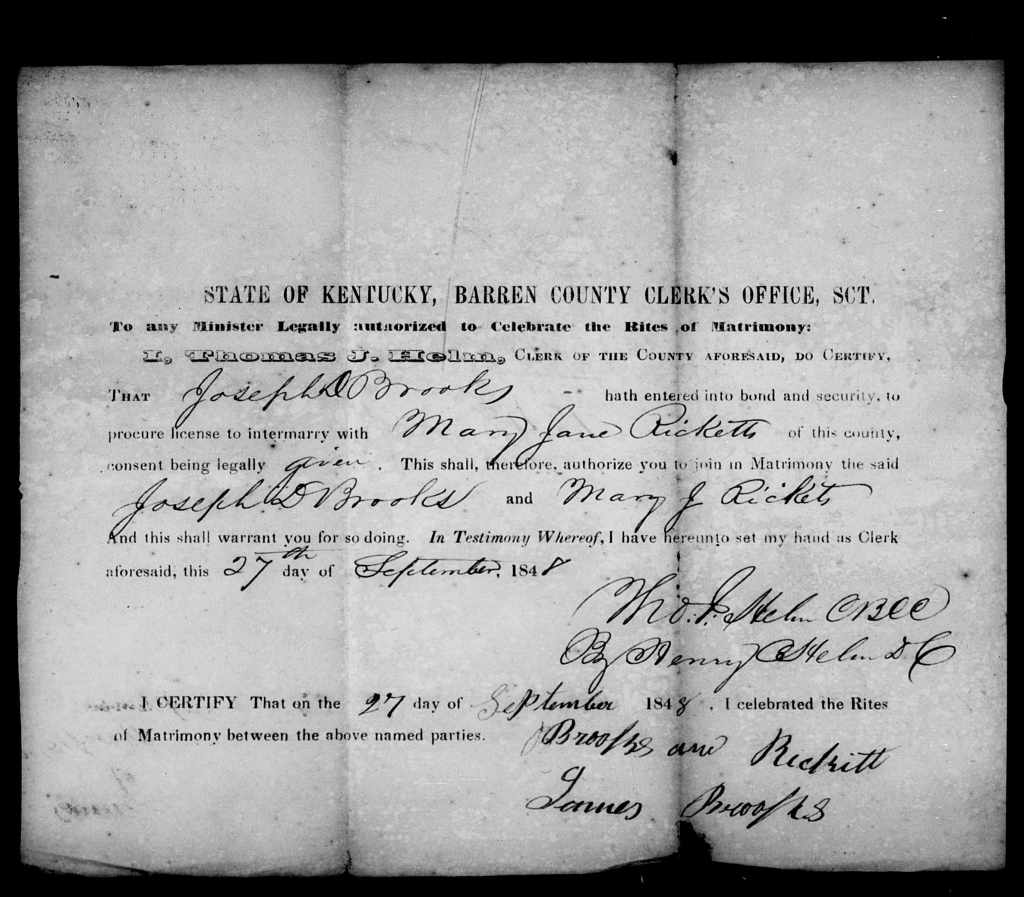 STATE OF KENTUCKY, BARREN COUNTY CLERK'S OFFICE, SCT.
To any Minister Legally autaorized to Celebrate the Rites of Matrimony:
I, Thomas J. Helm, CLERK OF THE COUNTY AFORESAID, DO CERTIFY,
THAT Joseph D Brooks hath entered into bond and security, to
procure license to intermarry with Mary Jane Ricketts of this county,
consent being legally given. This shall, therefore, authorize you to join in Matrimony the said
Joseph D Brooks and Mary J Rickets
And this shall warrant you for so doing. In Testimony Whereof, I have hereunto set my hand as Clerk
aforesaid, this 27th day of September, 1848
Tho. J. Helm CBCC
By Henry C Helm D. C
I CERTIFY That on the 27 day of September 1848, I celebrated the Rites
of Matrimony between the above named parties. Brooks and Reckitt
James Brooks